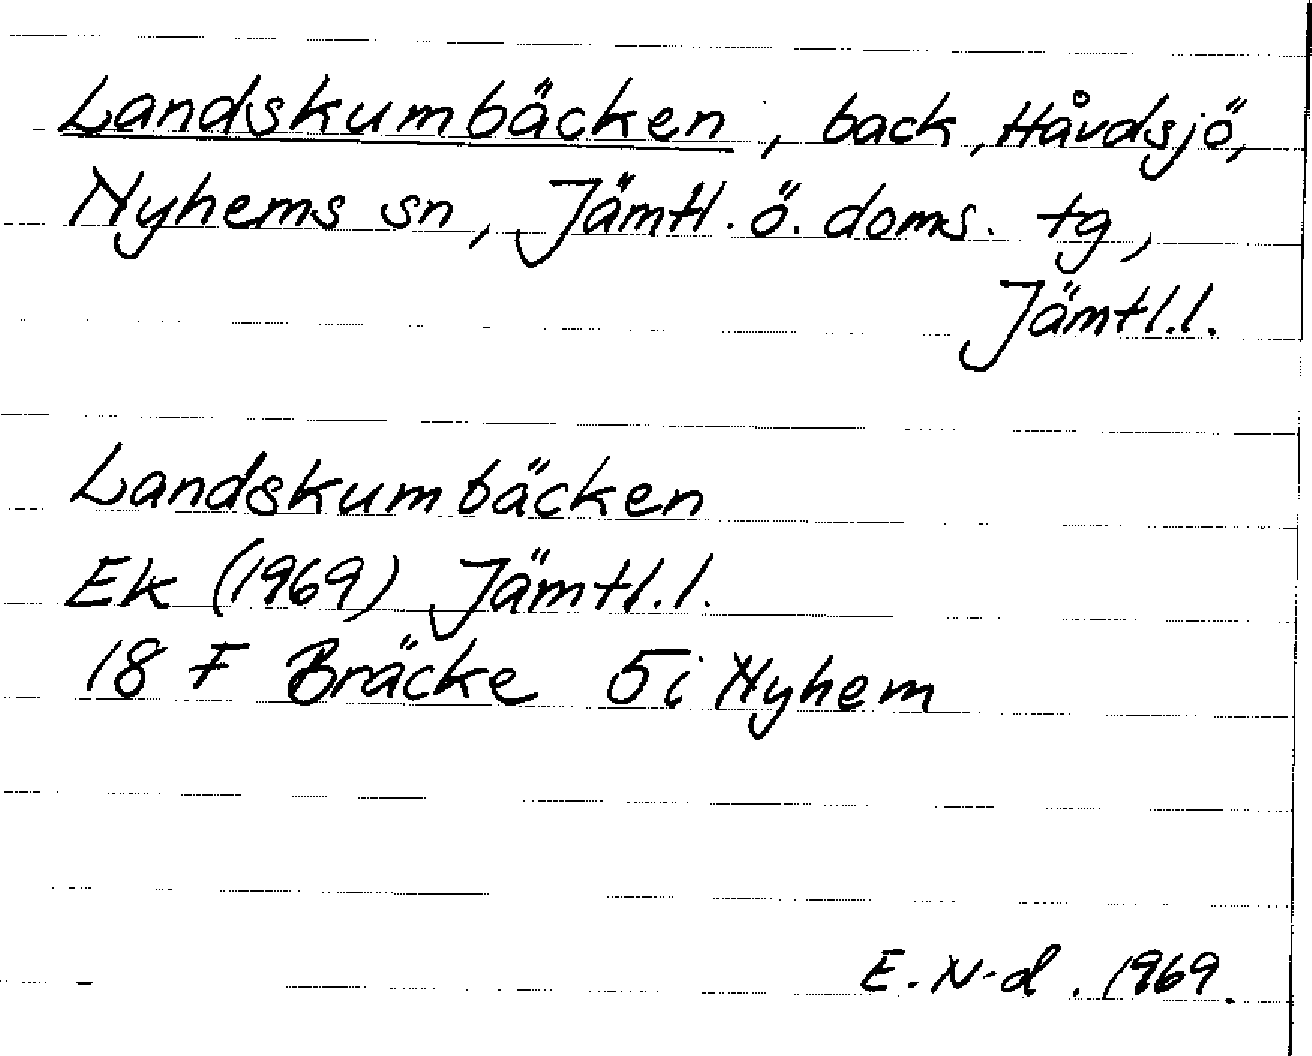 Landskumbäcken, back, Håvdsjö,
Nyhems sn, Jämtl. ö. doms. tg,
Jämtl.l.
Landskumbäcken
Ek (1969) Jämtl.l.
18 F Bräcke 5i Nyhem
E. N-d. 1969.